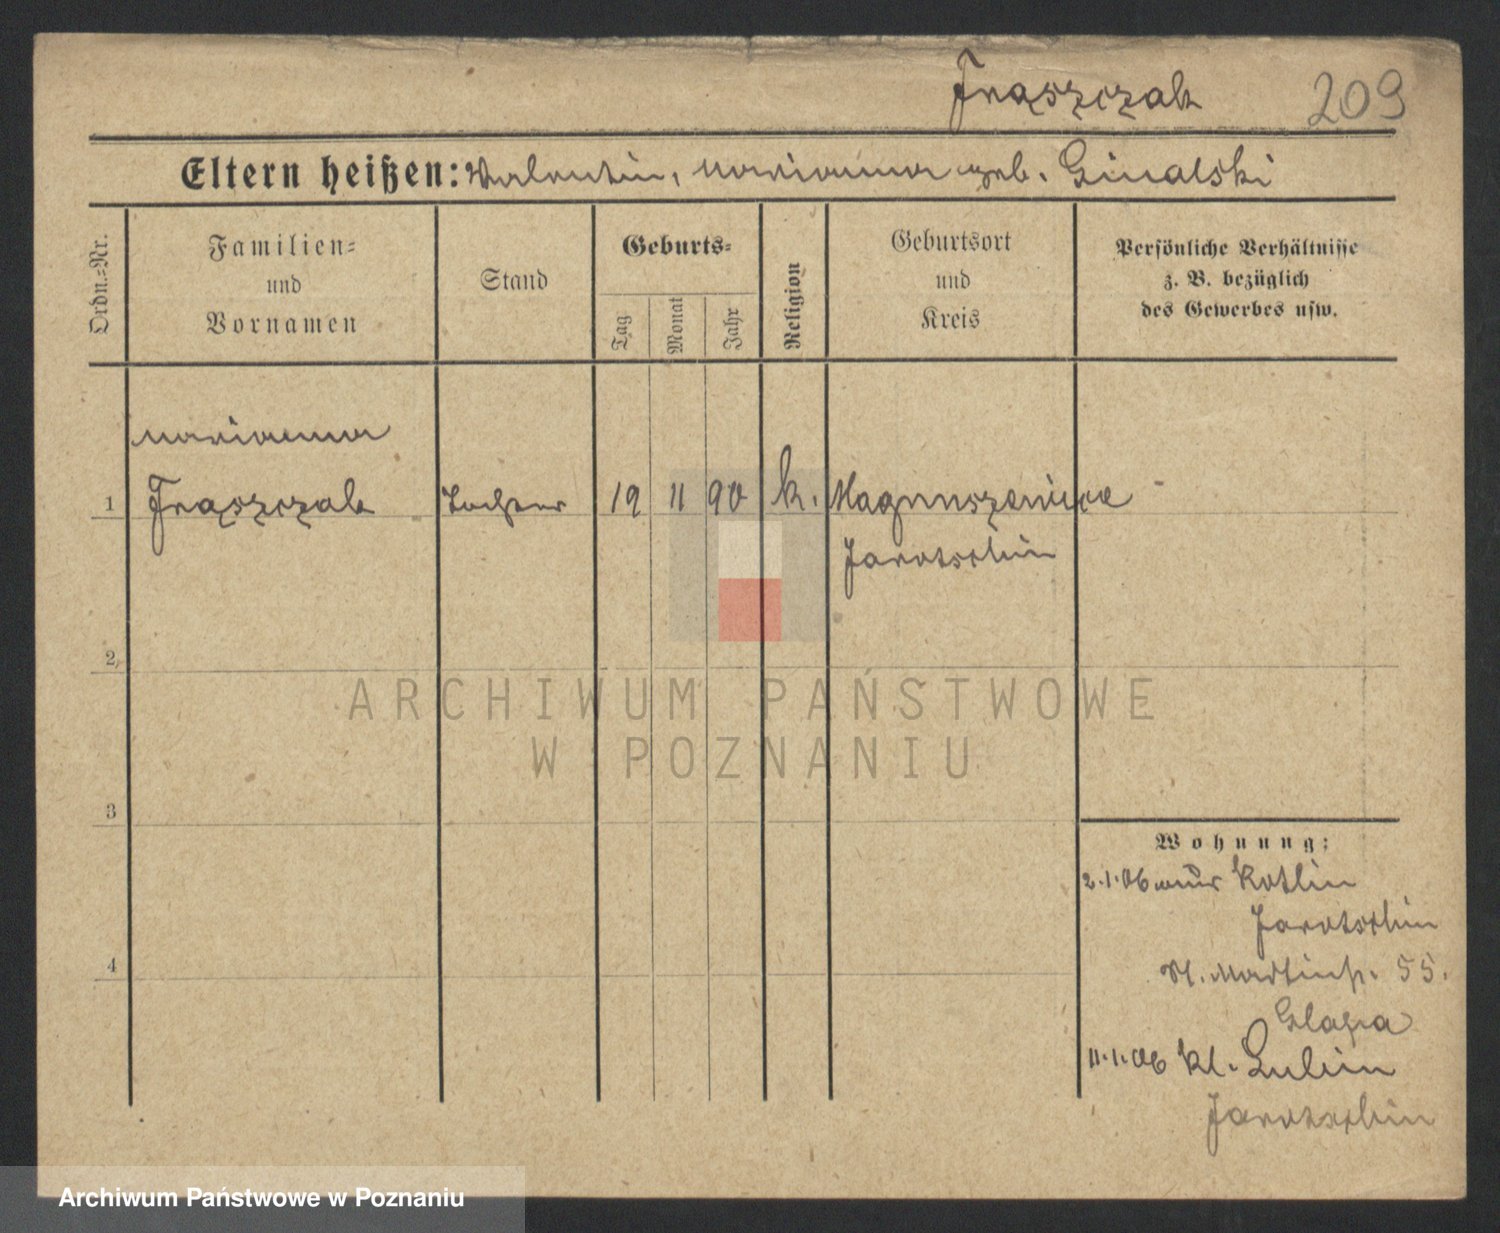 Fraszczak 209
Eltern heißen: Valentin, Marianna geb. Ginalski
Ordn.-Nr.
Familien-
und
Vornamen
Stand
Geburts-
Tag
Monat
Jahr
Religion
Geburtsort
und
Kreis
Persönliche Verhältnisse
z. B. bezüglich
des Gewerbes usw.
Marianna
1 Fraszczak Tochter 19 11 90 k. Magnuszewice
Jarotschin
2
ARCHIWUM PAŃSTWOWE
W POZNANIU
3
Wohnung:
2.1.06 aus Kotlin
Jarotschin
St. Martinstr. 55.
Glapa
4
11.1.06 Kl. Lubin
Jarotschin
Archiwum Państwowe w Poznaniu